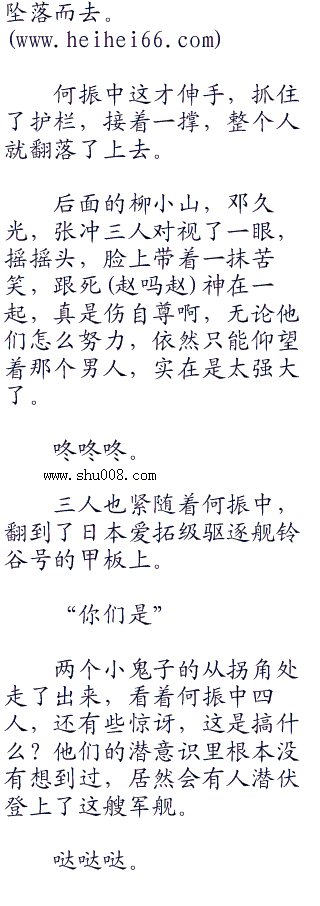 坠落而去。
(www.heihei66.com)
何振中这才伸手，抓住
了护栏，接着一撑，整个人
就翻落了上去。
后面的柳小山，邓久
光，张冲三人对视了一眼，
摇摇头，脸上带着一抹苦
笑，跟死(赵吗赵)神在一
起，真是伤自尊啊，无论他
们怎么努力，依然只能仰望
着那个男人，实在是太强大
了。
咚咚咚。
www.shu008.com
三人也紧随着何振中，
翻到了日本爱拓级驱逐舰铃
谷号的甲板上。
“你们是”
两个小鬼子的从拐角处
走了出来，看着何振中四
人，还有些惊讶，这是搞什
么？他们的潜意识里根本没
有想到过，居然会有人潜伏
登上了这艘军舰。
哒哒哒。